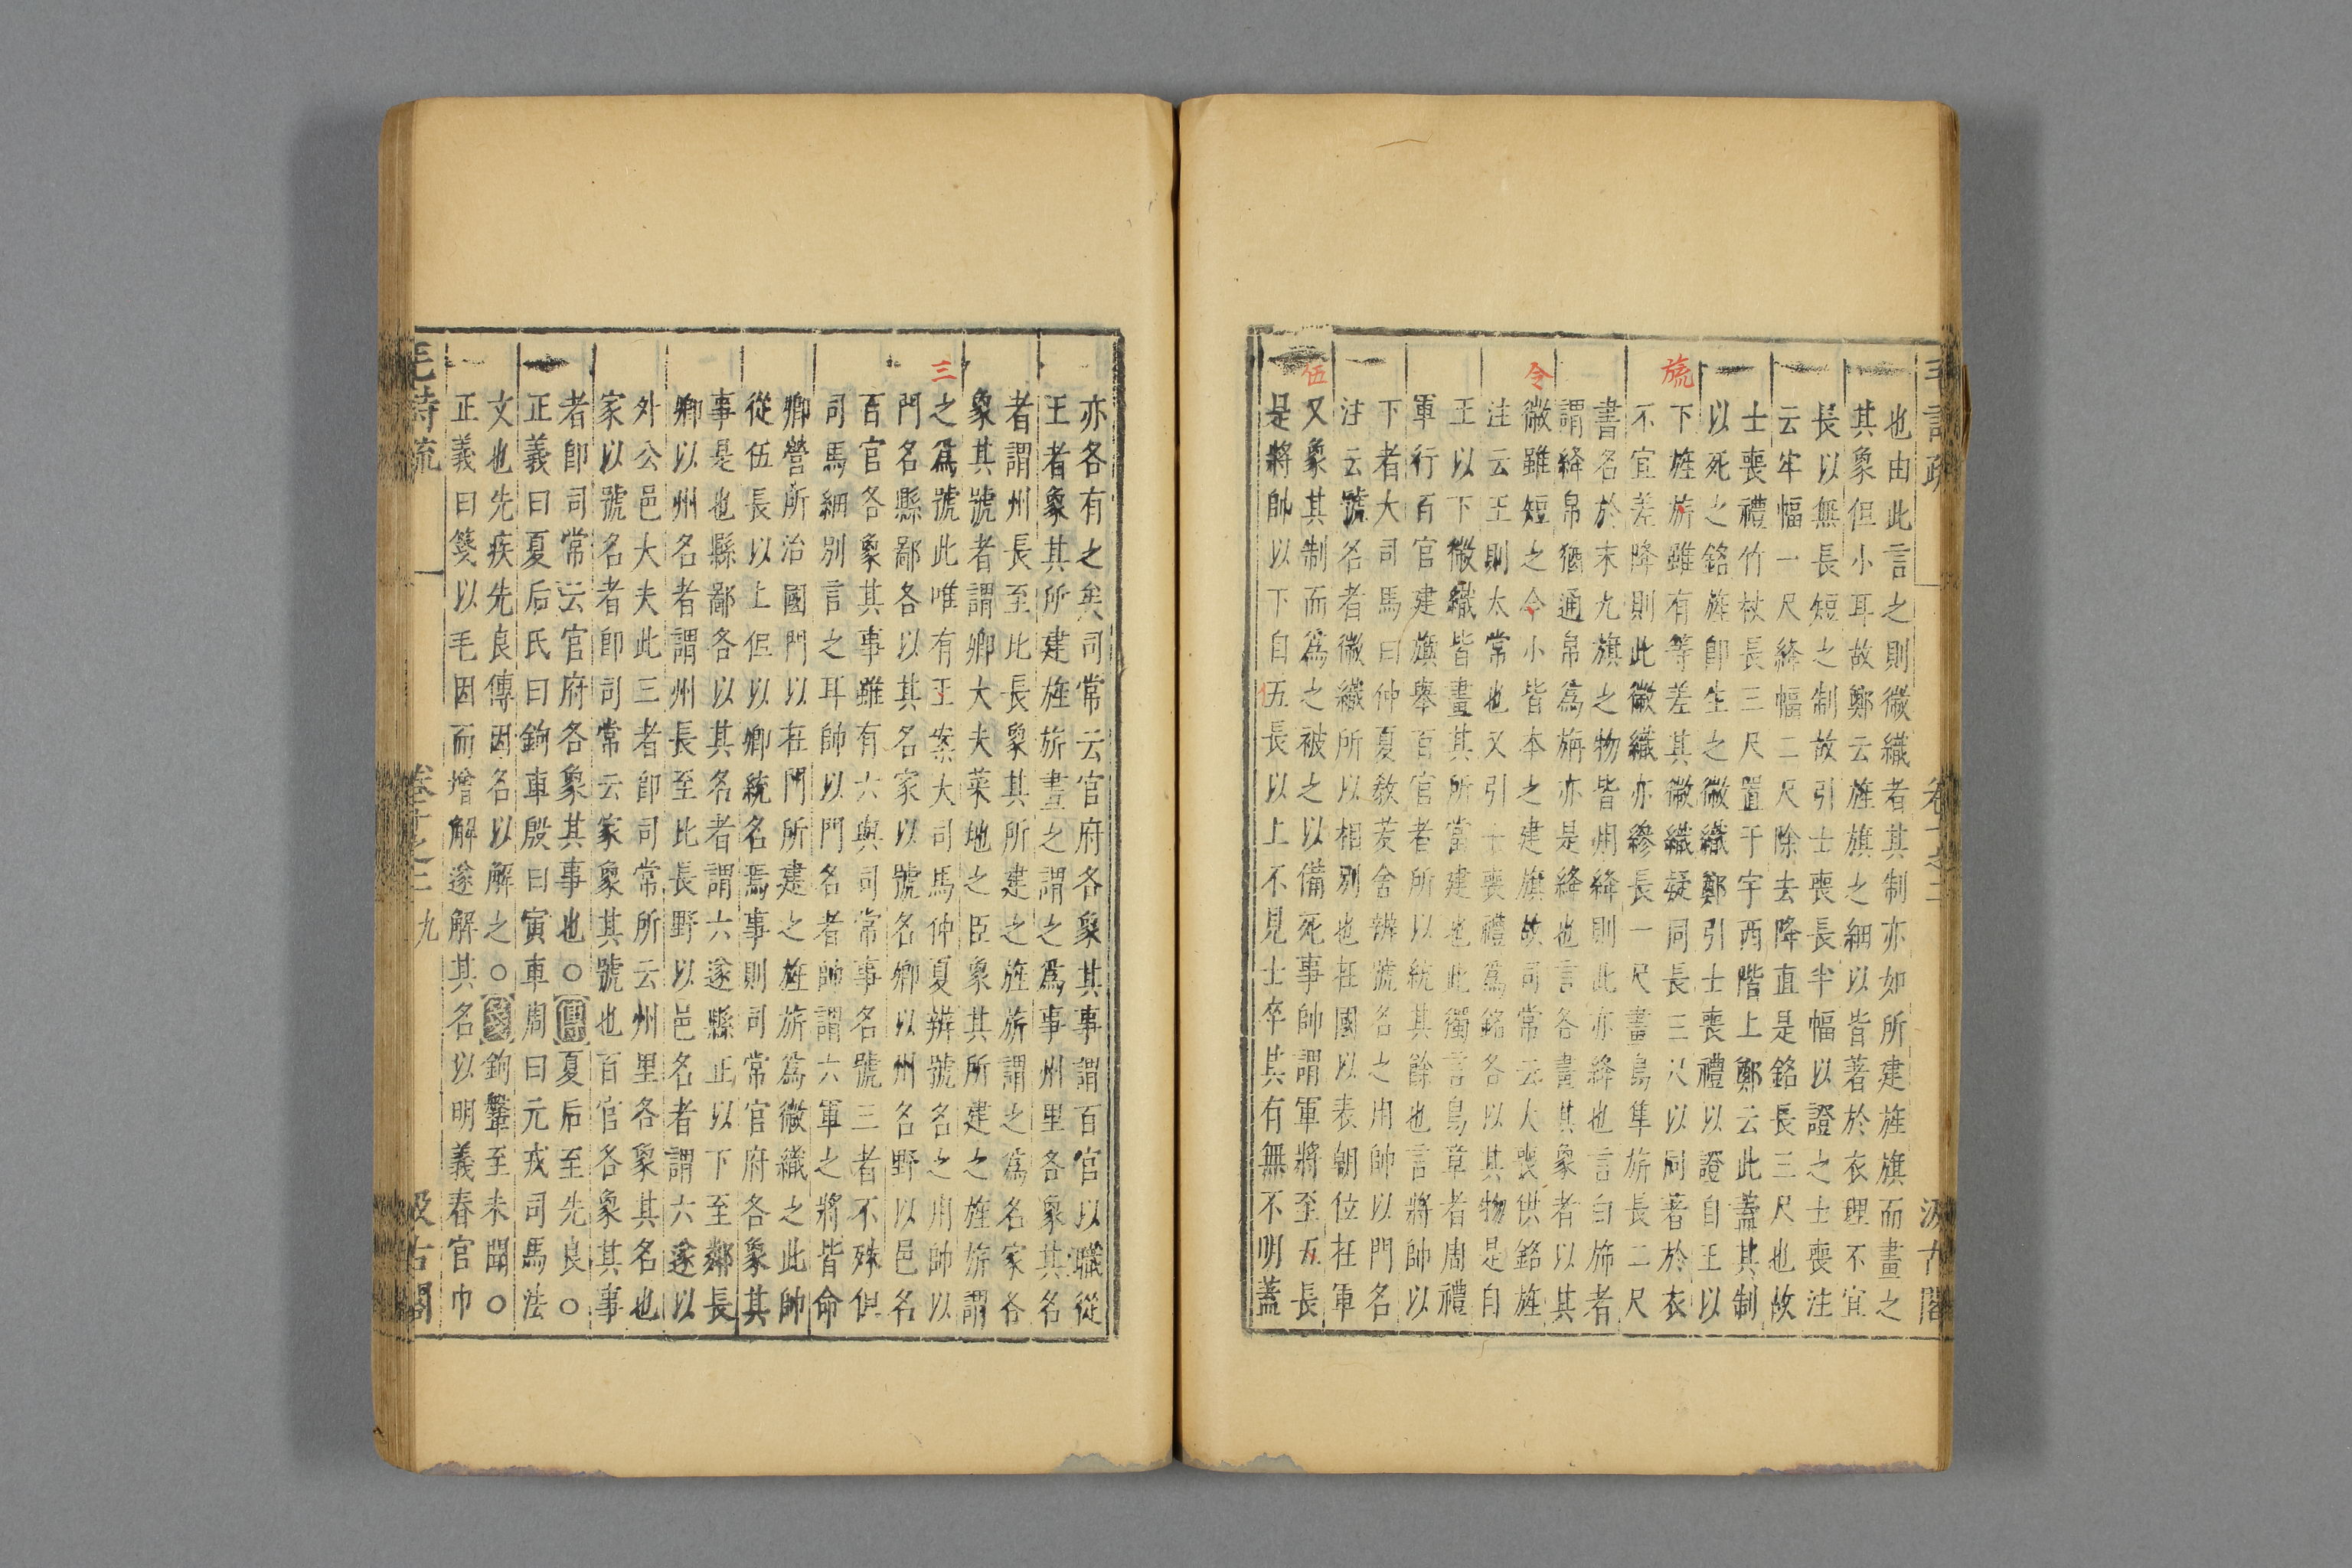 也由此言之則徽織者其制亦如所建旌旗而畫之
其象但小耳故鄭云旌旗之細以皆著於衣理不宜
長以無長短之制故引士喪長半幅以證之士喪注
云牢幅一尺絳幅二尺除去降直是銘長三尺也故
士喪禮竹杖長三尺置于宇西階上鄭云此蓋其制
以死之銘旌即生之徽織鄭引士喪禮以證自王以
下旌旂雖有等差其徽織疑同長三尺以同著於衣
不宜差降則此徽織亦縿長一尺畫鳥隼旂長二尺
書名於末九旗之物皆用絳則此亦絳也言白旆者
謂絳帛猶通帛為旃亦是絳也言各畫其象者以其
徽雖短之令小皆本之建旗故司常云大喪供銘旌
注云王則太常也又引士喪禮為銘各以其物是自
王以下徽織皆畫其所當建也此獨言鳥章者周禮
軍行百官建旟舉百官者所以統其餘也言將帥以
下者大司馬曰仲夏教茇舍辨號名之用帥以門名
注云號名者徽織所以相別也在國以表朝位在軍
又象其制而為之被之以備死事帥謂軍將至五長
是將帥以下自伍長以上不見士卒其有無不明蓋
旒
令
伍
亦各有之矣司常云官府各象其事謂百官以職從
王者象其所建旌旂畫之謂之為事州里各象其名
者謂州長至比長象其所建之旌旂謂之為名家各
象其號者謂卿大夫菜地之臣象其所建之旌旂謂
之為號此唯有王案大司馬仲夏辨號名之用帥以
門名縣鄙各以其名家以號名卿以州名野以邑名
百官各象其事雖有六與司常事名號三者不殊但
司馬細別言之耳帥以門名者帥謂六軍之將皆命
卿營所治國門以在門所建之旌旂為徽織之此帥
從伍長以上但以卿統名焉事則司常官府各象其
事是也縣鄙各以其名者謂六遂縣正以下至鄰長
卿以州名者謂州長至比長野以邑名者謂六遂以
外公邑大夫此三者即司常所云州里各象其名也
家以號名者即司常云家象其號也百官各象其事
者即司常云官府各象其事也○傳夏后至先良○
正義曰夏后氏曰鉤車殷曰寅車周曰元戎司馬法
文也先疾先良傳因名以解之○箋鉤鞶至未聞○
正義曰箋以毛因而增解遂解其名以明義春官巾
三
毛詩疏
卷十之二
九
汲古閣